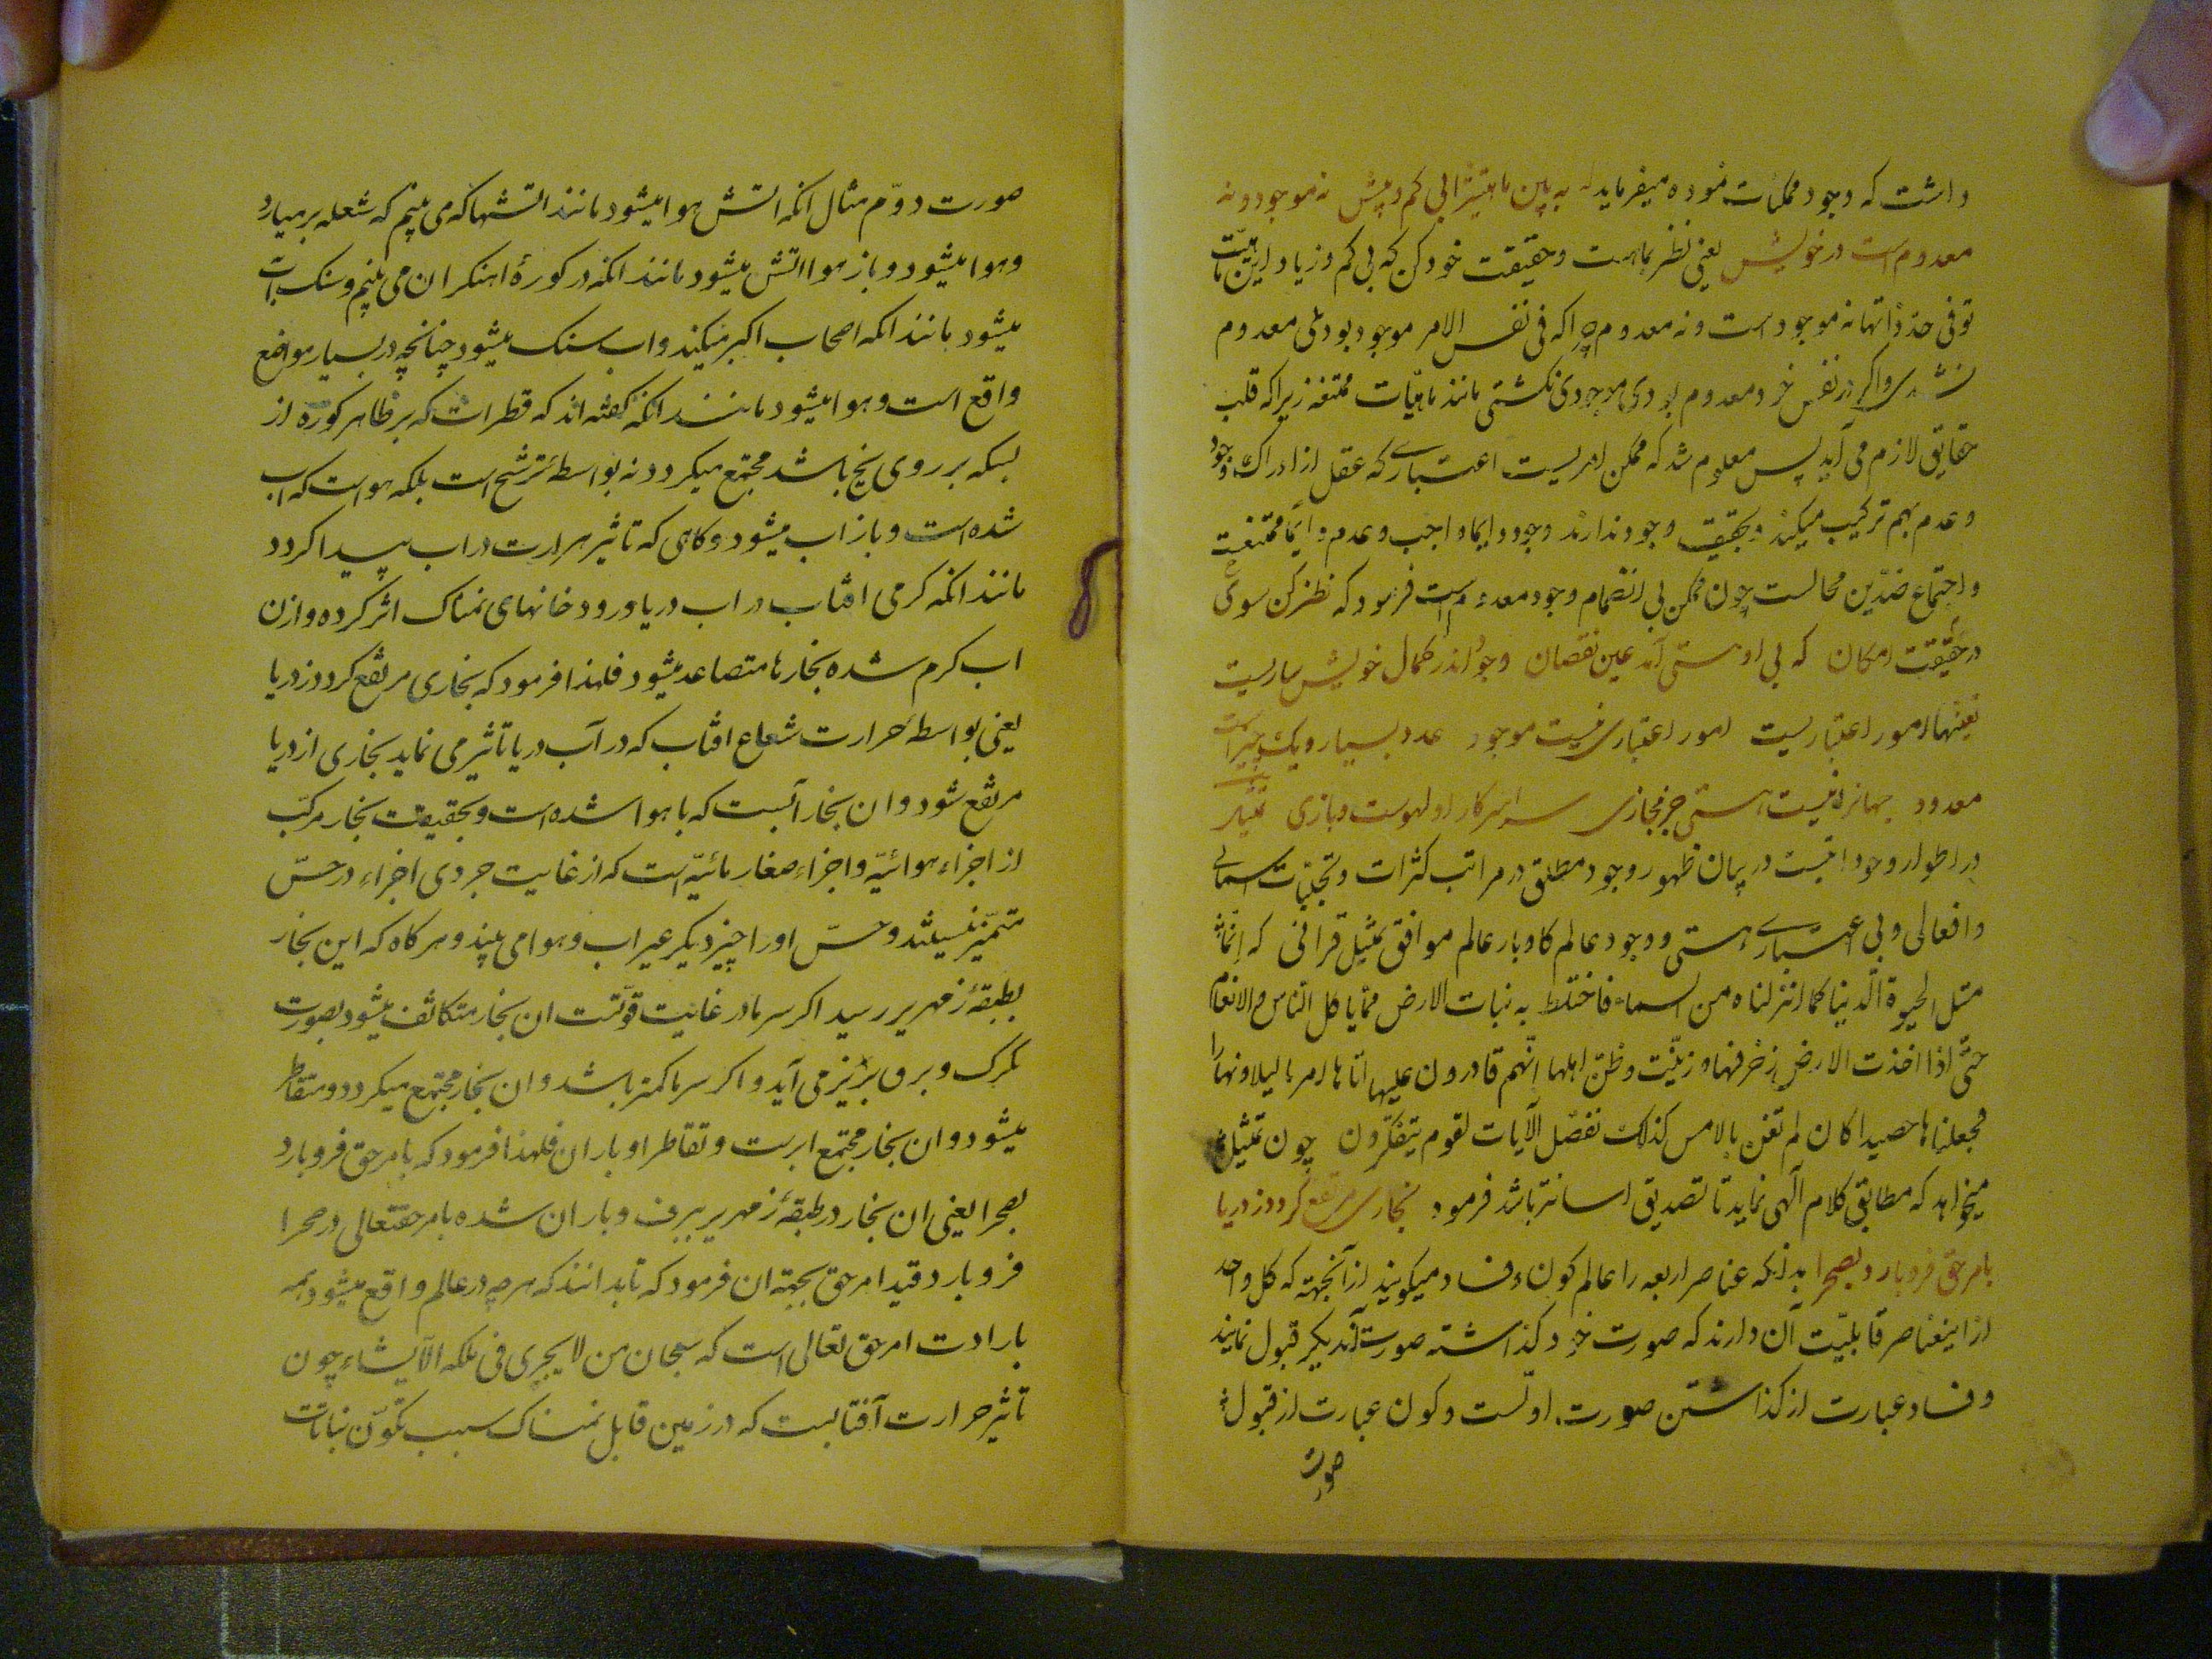 داشت که وجود ممکنات نموده میفرماید که به بین ماهیّترا بی کم و بیش نه موجود و نه
معدوم است در خویش یعنی نظر بماهیت و حقیقت خود کن که بی کم و زیاد این ماهیّت
تو فی حدّ ذاتها نه موجود است و نه معدوم چرا که فی نفس الامر موجود بودی معدوم
نشدی و اگر در نفس خود معدوم بودی موجودی نکشتی مانند ماهیّات ممتنعه زیرا که قلب
حقایق لازم می آید پس معلوم شد که ممکن امریست اعتباری که عقل از ادراک وجود
و عدم بهم ترکیب میکند و بحقیقت وجود ندارند وجود دایما واجب و عدم دایما ممتنعست
و اجتماع ضدّین محالست چون ممکن بی انضمام وجود معدوم است فرمود که نظر کن سوی
در حقیقت امکان که بی او هستی آمد عین نقصان وجود اندر کمال خویش ساریست
تعیّنها امور اعتباریست امور اعتباری نیست موجود عدد بسیار و یک چیز است
معدود جهانرا نیست هستی جز مجازی سراسر کار او لهوست و بازی تمثیل
در اطوار وجود است در بیان ظهور وجود مطلق در مراتب کثرات و تجلیّات اسمائی
و افعالی و بی اعتباری هستی و وجود عالم کاوبار عالم موافق تمثیل قرآنی که انّما
مثل الحیوة الدّنیا کما انزلناه من السماء فاختلط به نبات الارض ممّا یاکل النّاس و الانعام
حتّی اذا اخذت الارض زخرفها و ازیّنت و ظنّ اهلها انّهم قادرون علیها اتاها امرنا لیلا او نهارا
فجعلناها حصیدا کان لم تغن بالامس کذلک نفصّل الآیات لقوم یتفکّرون چون تمثیل
میخواهد که مطابق کلام آلهی نماید تا تصدیق اسانتر باشد فرمود بخاری مرتفع گردد ز دریا
بامر حق فرو بارد بصحرا بدانکه عناصر اربعه را عالم کون و فساد میکویند از آنجهة که کل واحد
از این عناصر قابلیّت آن دارند که صورت خود کذاشته صورت آندیکر قبول نمایند
و فساد عبارت از کذاشتن صورت اوّلست و کون عبارت از قبول
صورت
صورت دوّم مثال انکه اتش هوا میشود مانند اتشها که می بینم که شعله بر میارد
و هوا میشود و باز هوا اتش میشود مانند انکه در کورهٔ اهنکران می بینم و سنک اب
میشود مانند انکه اصحاب اکبر میکنند و اب سنک میشود چنانچه در بسیار مواضع
واقع است و هوا میشود مانند انکه کفته اند که قطرات که بر ظاهر کوزه از
بسکه بر روی یخ باشد مجتمع میکردد نه بواسطهٔ ترشح است بلکه هواست که اب
شده است و باز اب میشود و کاهی که تاثیر حرارت در اب پیدا کردد
مانند انکه کرمی افتاب در اب دریا و رودخانهای نمناک اثر کرده و ازن
اب کرم شده بخارها متصاعد میشود فلهذا فرمود که بخاری مرتفع کردد ز دریا
یعنی بواسطهٔ حرارت شعاع افتاب که در آب دریا تأثیر می نماید بخاری از دریا
مرتفع شود و ان بخار آبست که با هوا شده است و بحقیقت بخار مرکّب
از اجزاء هوائیّه و اجزاء صغار مائیّه است که از غایت خردی اجزاء در حسّ
متمیّز نیستند و حسّ او را چیز دیکر غیر اب و هوا می بیند و هر کاه که این بخار
بطبقهٔ زمهریر رسید اکر سرما در غایت قوّتست ان بخار متکاثف میشود بصورت
تکرک و برف بزیر می آید و اکر سرما کمتر باشد و ان بخار مجتمع میکردد و متقاطر
میشود و ان بخار مجتمع ابرست و تقاطر او باران فلهذا فرمود که بامر حق فرو بارد
بصحرا یعنی ان بخار در طبقهٔ زمهریر ببرف و باران شده بامر حقتعالی در صحرا
فرو بارد قید امر حق بجهة ان فرمود که تا بدانند که هر چه در عالم واقع میشود همه
بارادت امر حق تعالی است که سبحان من لا یجری فی ملکه الّا یشاء چون
تأثیر حرارت آفتابست که در زمین قابل نمناک سبب تکوّن نباتات